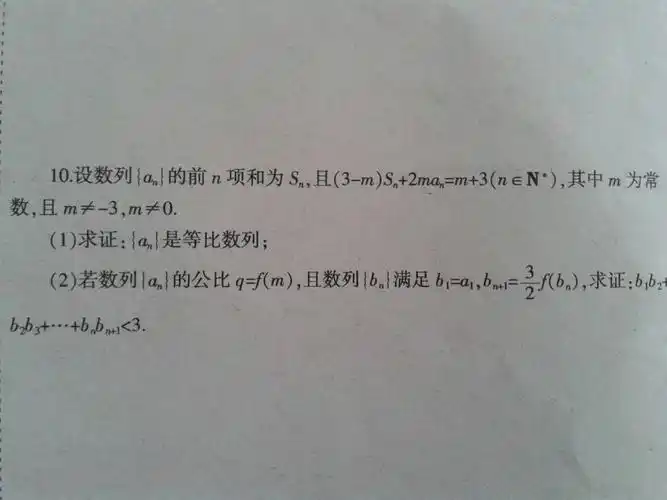 10.设数列{aₙ}的前 n 项和为 Sₙ,且(3-m)Sₙ+2maₙ=m+3(n∈N*),其中 m 为常
数,且 m≠-3,m≠0.
(1)求证:{aₙ}是等比数列;
(2)若数列{aₙ}的公比 q=f(m),且数列{bₙ}满足 b₁=a₁,bₙ₊₁=3/2f(bₙ),求证:b₁b₂+
b₂b₃+⋯+bₙbₙ₊₁<3.